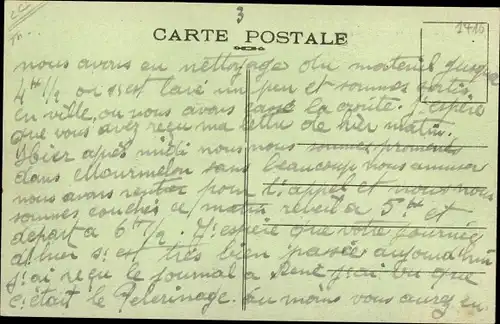 3
1916
CARTE POSTALE
nous avons eu nettoyage du materiel jusque
4H 1/2 on s'est lavé un peu et sommes sortis
en ville, ou nous avons cassé la croûte. J'espère
que vous avez reçu ma lettre de hier matin.
Hier après midi nous nous sommes promenés
dans Mourmelon sans beaucoup nous amuser
nous avons rentré pour l'appel et nous nous
sommes couchés ce matin réveil à 5H et
depart a 6H 1/2. J'espère que votre journée
d'hier s'est très bien passée aujourd'hui
j'ai reçu le journal a René j'ai vu que
c'était le Pelerinage. au moins vous aurez eu